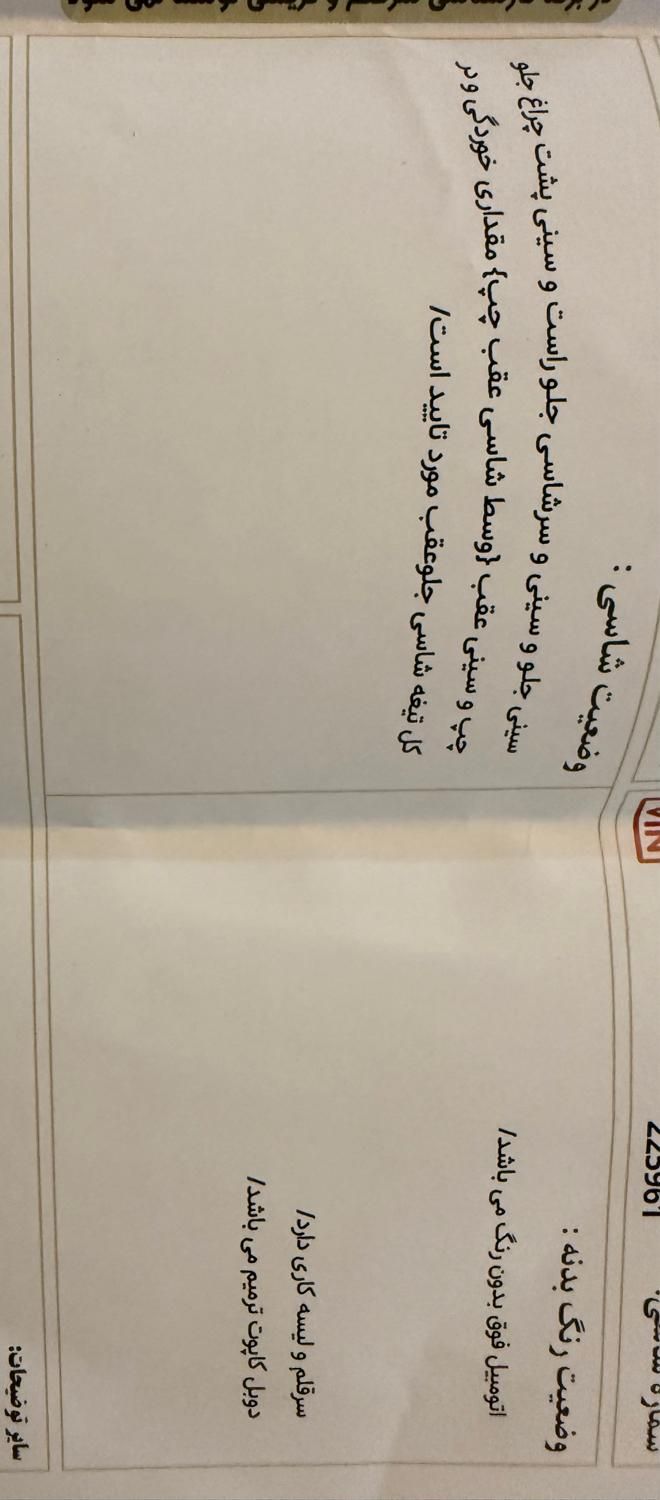 VIN
225961
وضعیت شاسی :
سینی جلو و سینی و سرشاسی جلو راست و سینی پشت چراغ جلو
چپ و سینی عقب {وسط شاسی عقب چپ} مقداری خوردگی و در
کل تیغه شاسی جلوعقب مورد تایید است/
وضعیت رنگ بدنه :
اتومبیل فوق بدون رنگ می باشد/
سرقلم و لیسه کاری دارد/
دوبل کاپوت ترمیم می باشد/
سایر توضیحات: